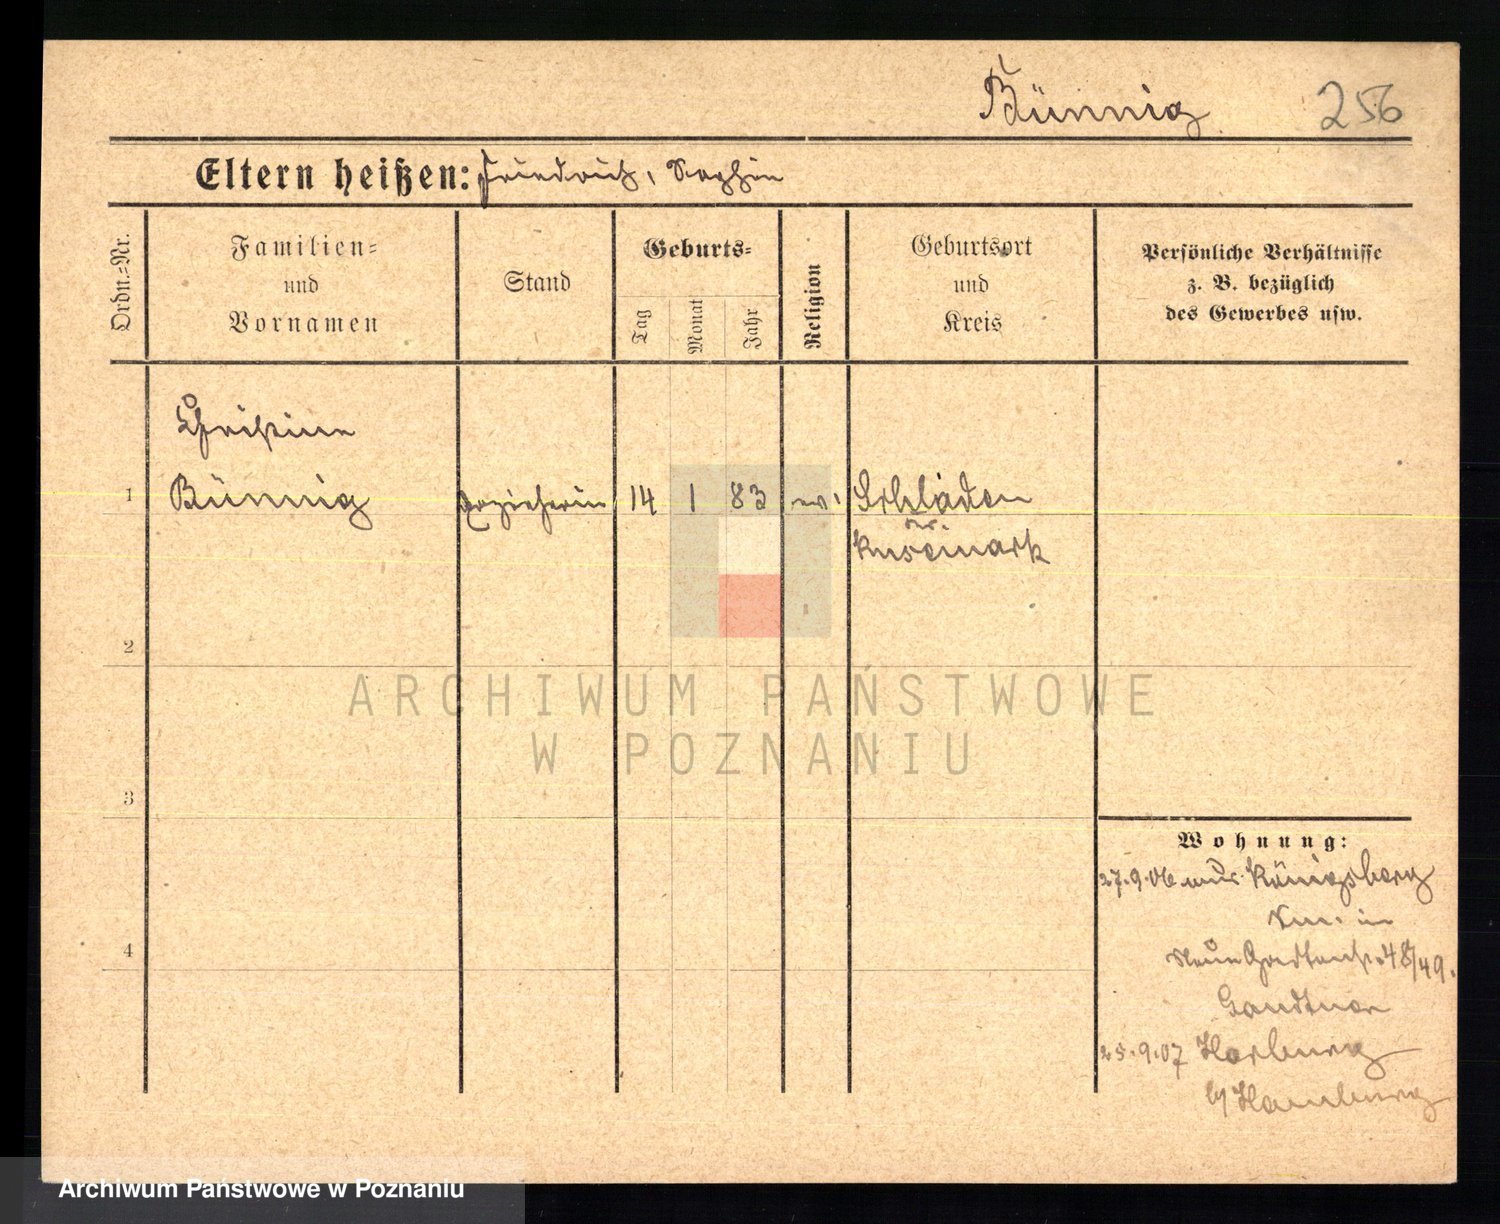 Bünnig 256
Eltern heißen: Friedrich, Sophie
Ordn.=Nr.
Familien=
und
Vornamen
Stand
Geburts=
Tag
Monat
Jahr
Religion
Geburtsort
und
Kreis
Persönliche Verhältnisse
z. B. bezüglich
des Gewerbes usw.
Christine
1 Bünnig Erzieherin 14 1 83 ev.
2
3
4
Wohnung:
27.9.06 aus Königsberg
Neue Gartenstr. 48/49.
25.9.07 Harburg
b/ Hamburg
ARCHIWUM PAŃSTWOWE
W POZNANIU
Archiwum Państwowe w Poznaniu